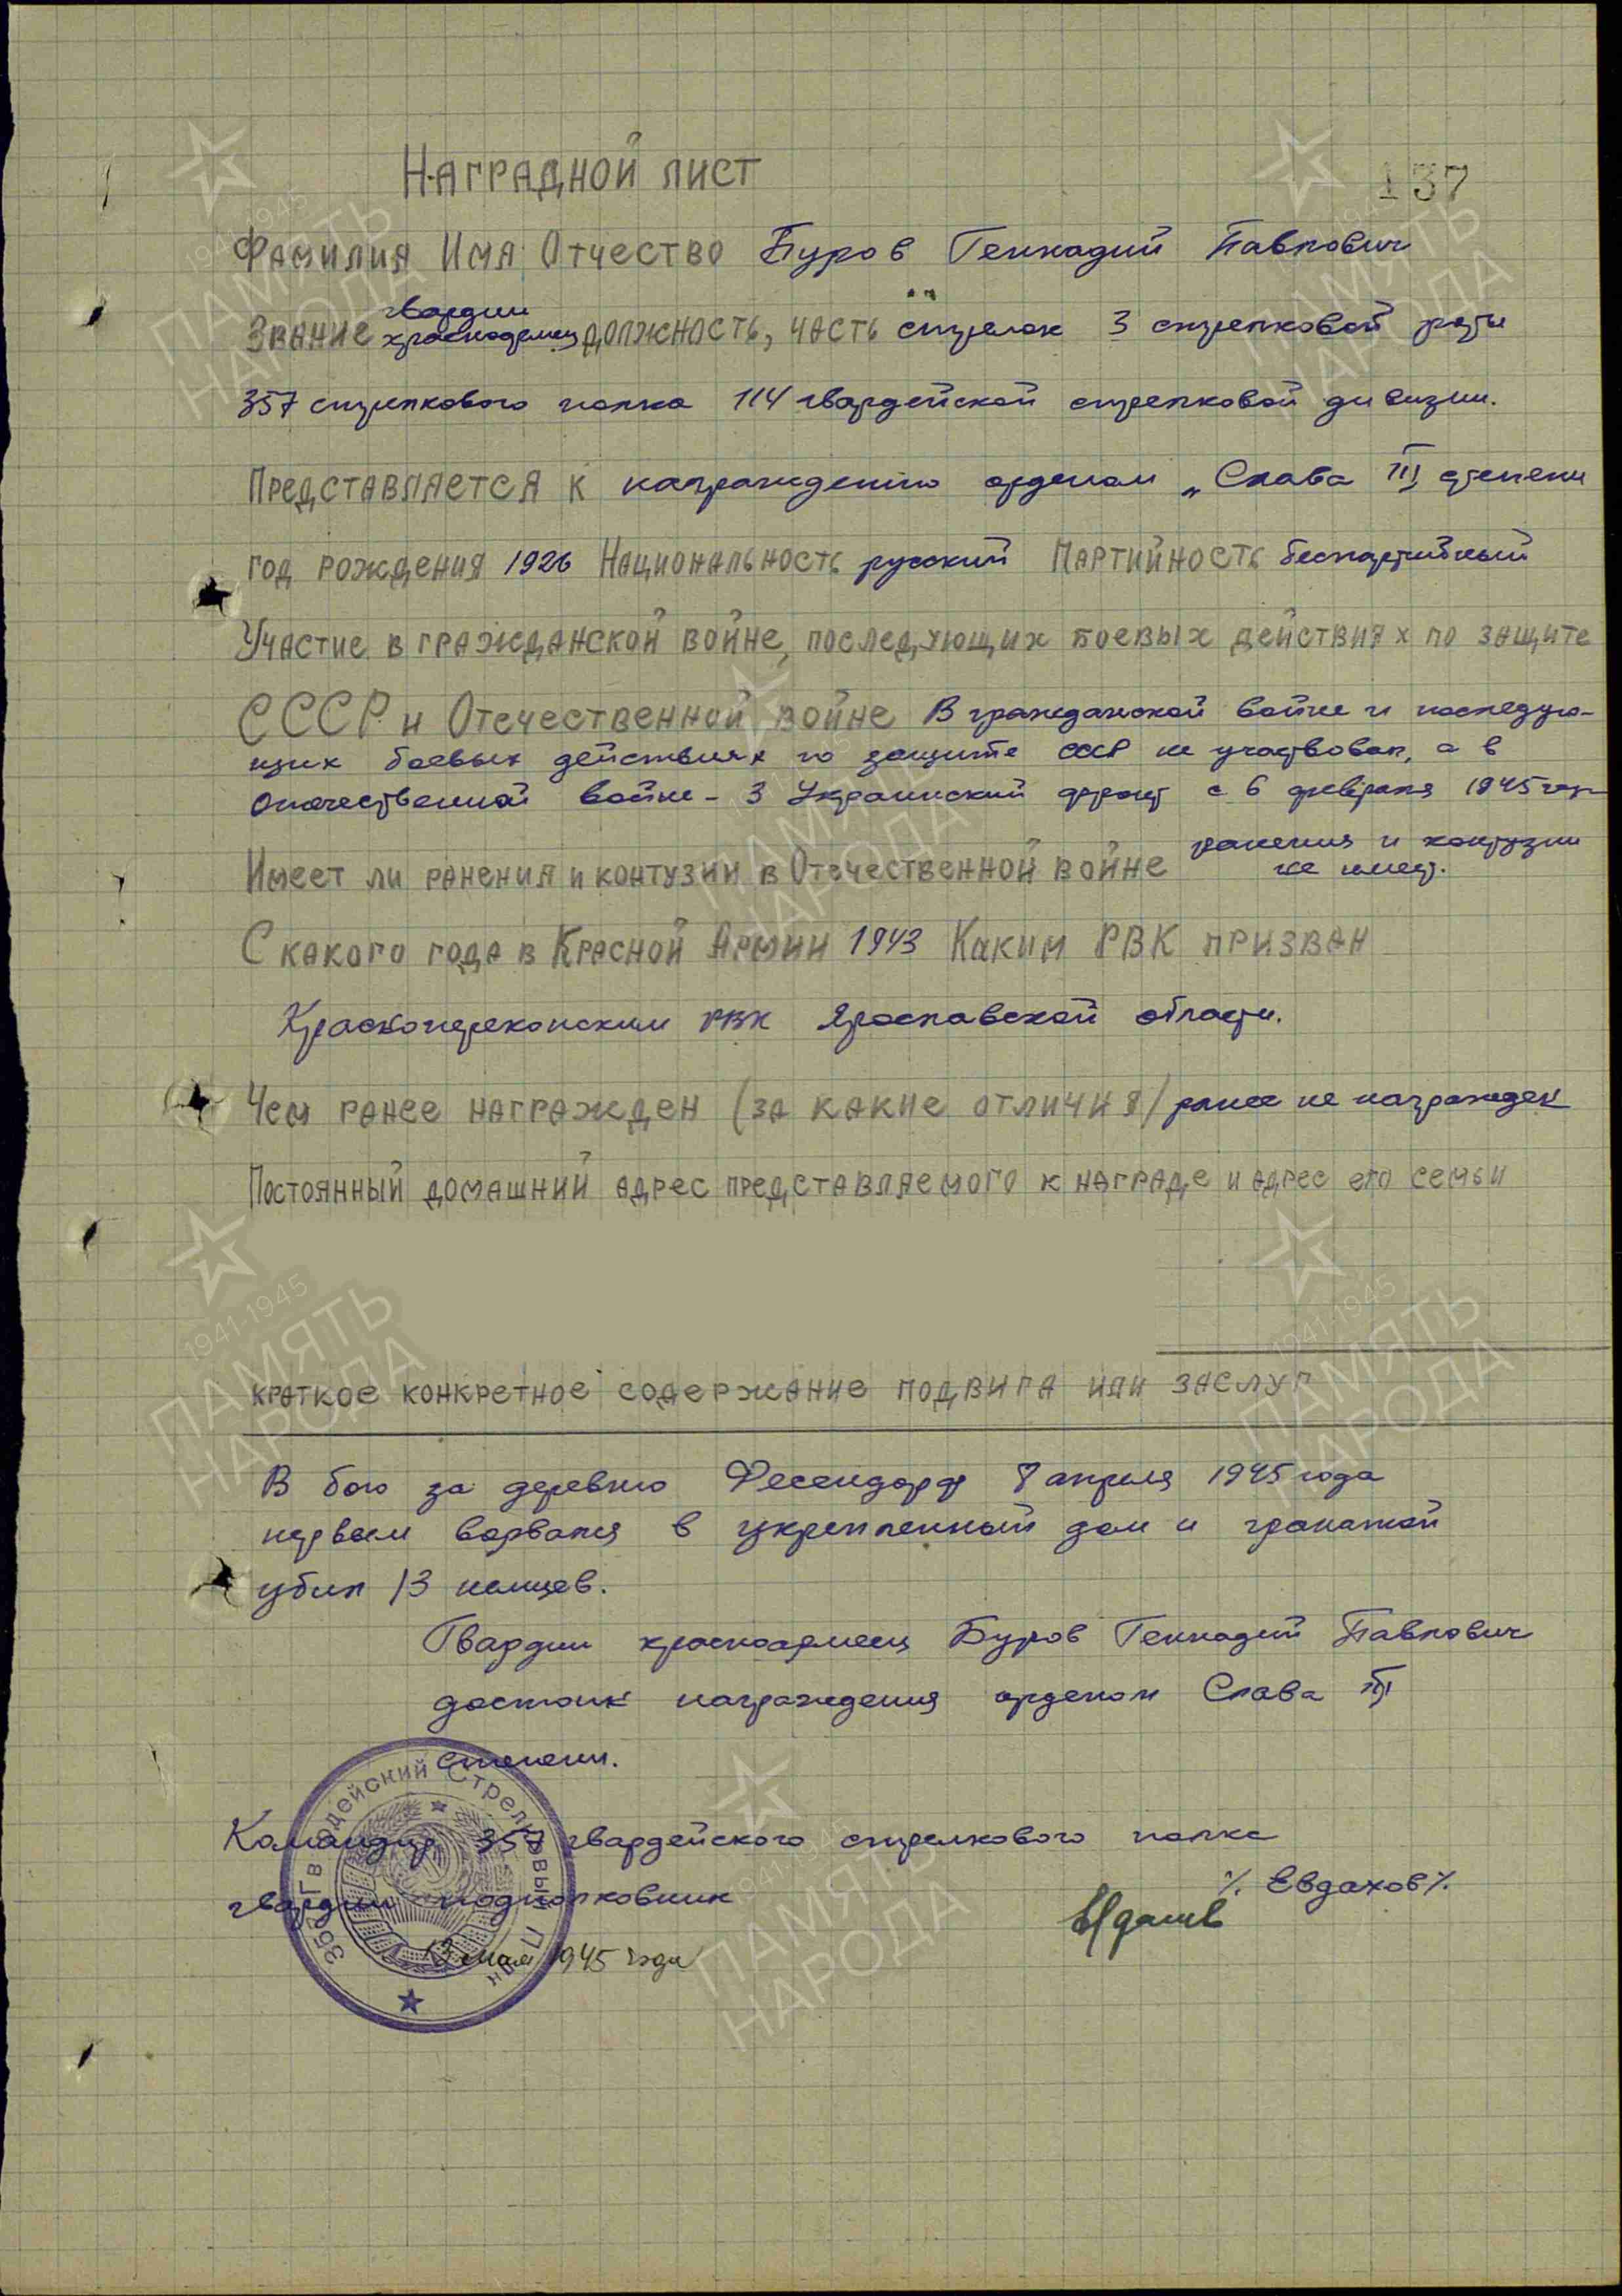 137
Наградной лист
Фамилия Имя Отчество Буров Геннадий Павлович
гвардии
Звание красноармеец должность, часть стрелок 3 стрелковой роты
357 стрелкового полка 114 гвардейской стрелковой дивизии.
Представляется к награждению орденом „Слава III степени
год рождения 1926 Национальность русский Партийность беспартийный
Участие в гражданской войне, последующих боевых действиях по защите
СССР и Отечественной войне В гражданской войне и последую-
щих боевых действиях по защите СССР не участвовал, а в
отечественной войне - 3 Украинский фронт с 6 февраля 1945 года
Имеет ли ранения и контузии в Отечественной войне ранения и контузии
не имеет.
С какого года в Красной Армии 1943 Каким РВК призван
Красноперекопским РВК Ярославской области.
Чем ранее награжден (за какие отличия) ранее не награжден
Постоянный домашний адрес представляемого к награде и адрес его семьи
краткое конкретное содержание подвига или заслуг
В бою за деревню Фесендорф 8 апреля 1945 года
первым ворвался в укрепленный дом и гранатой
убил 13 немцев.
Гвардии красноармеец Буров Геннадий Павлович
достоин награждения орденом Слава III
степени.
Командир 357 гвардейского стрелкового полка
гвардии подполковник
/. Евдахов /.
13 мая 1945 года
357 Гвардейский Стрелковый Полк
1941-1945
ПАМЯТЬ
НАРОДА